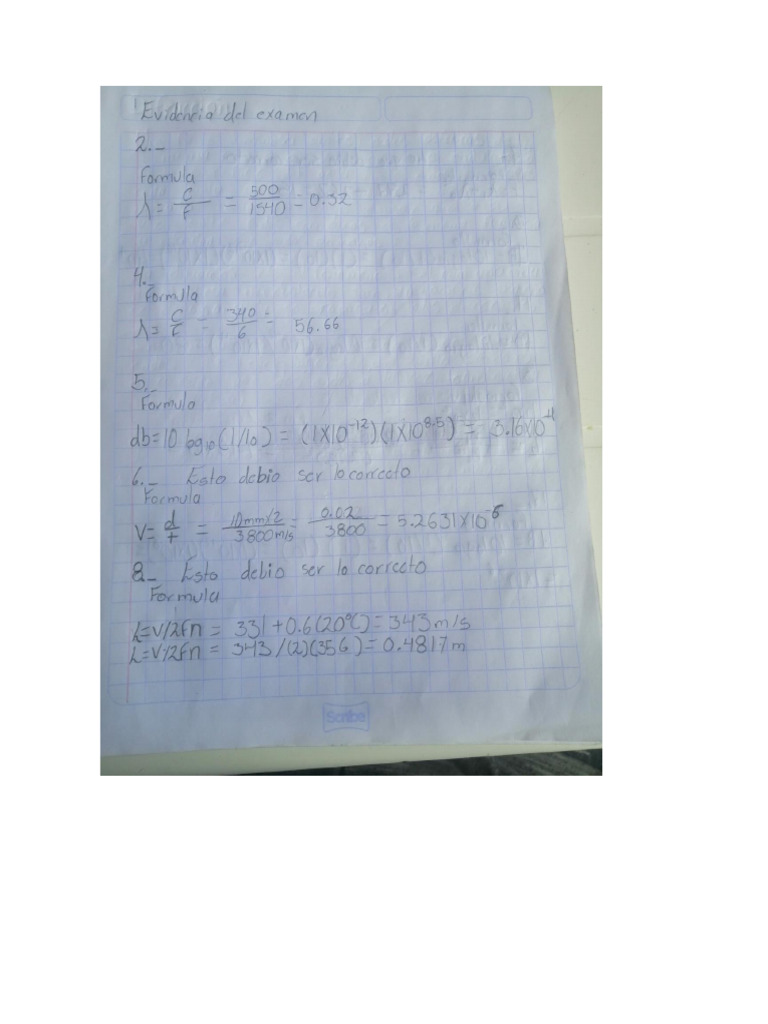 Evidencia del examen
2._
Formula
λ = C/F = 500/1540 = 0.32
4._
Formula
λ = C/F = 340/6 = 56.66
5._
Formula
db=10 log10 (I/Io) = (1X10^-12)(1X10^8.5) = 3.16X10^-4
6._ Esto debio ser lo correcto
Formula
V= d/t = 10mmX2/3800m/s = 0.02/3800 = 5.2631X10^-6
8_ Esto debio ser lo correcto
Formula
L=V/2Fn = 331+0.6(20°C)=343m/s
L=V/2Fn = 343/(2)(356)=0.4817m
Scribe